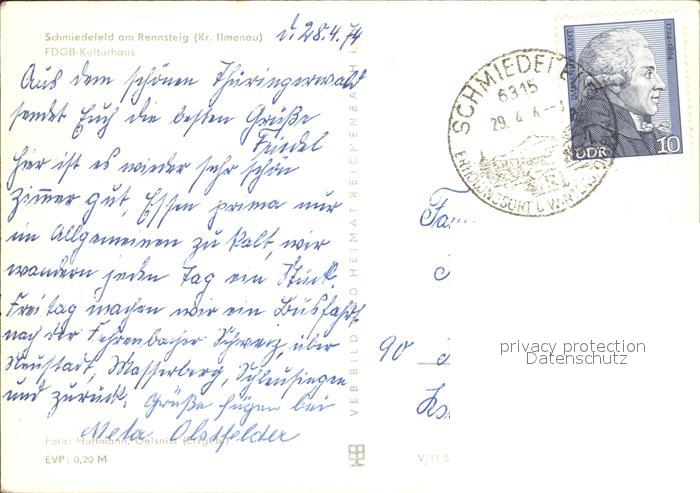 Schmiedefeld am Rennsteig (Kr. Ilmenau)
FDGB-Kulturhaus
d. 28.4.74
Aus dem schönen Thüringerwald
sendet Euch die besten Grüße
Friedel
hier ist es wieder sehr schön
Zimmer gut, Essen prima nur
im Allgemeinen zu kalt, wir
wandern jeden Tag ein Stück.
Freitag machen wir ein Busfahrt
nach der Fehrenbacher Schweiz, über
Neustadt, Masserberg, Schleusingen
und zurück. Grüße fügen bei
Meta Obstfelder
Foto: Hoffmann, Oelsnitz (Erzgeb.)
EVP: 0,20 M
VEB BILD UND HEIMAT REICHENBACH i.
V/11 5
SCHMIEDEFELD
6315
29. 4. 4
ERHOLUNGSORT U. WINTERS
IMMANUEL KANT
1724-1804
DDR
10
Fam
90
privacy protection
Datenschutz